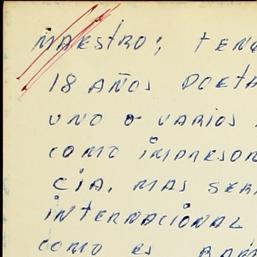 MAESTRO; TENG
18 AÑOS POETA
UNO o VARIOS
COMO IMPRESOR
CIA. MAS SER
INTERNACIONAL
COMO ES